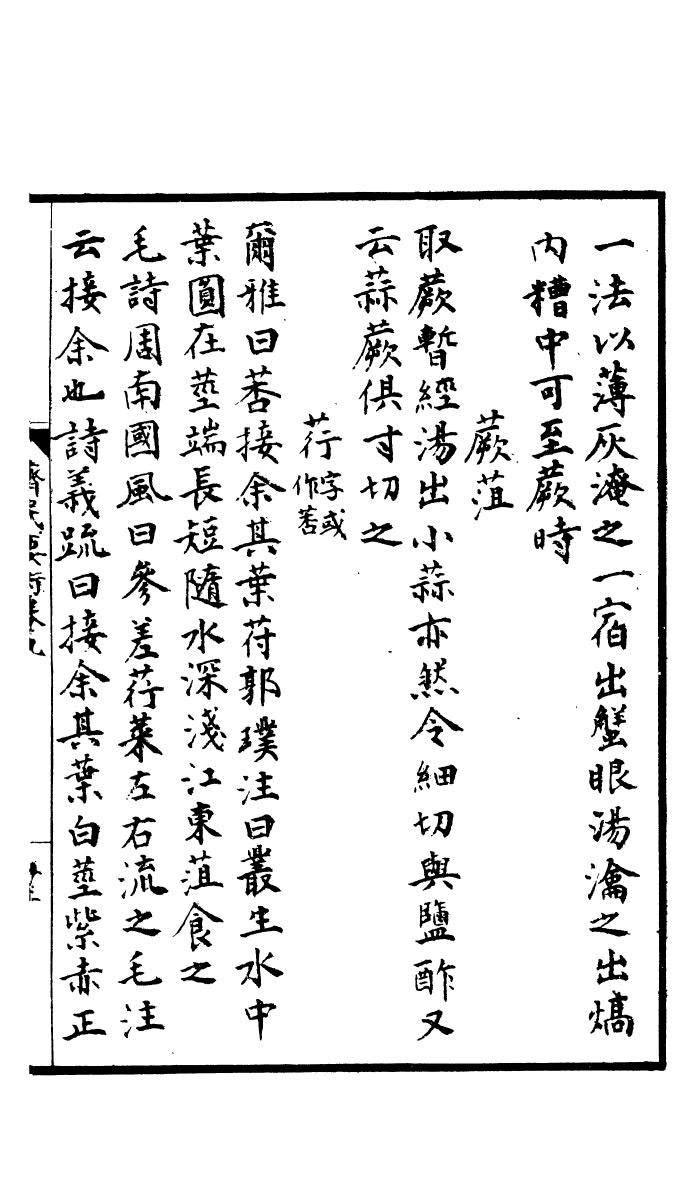 一法以薄灰淹之一宿出蟹眼湯瀹之出熇
内糟中可至蕨時
蕨菹
取蕨暫經湯出小蒜亦然令細切與鹽酢又
云蒜蕨俱寸切之
荇字或作莕
爾雅曰莕接余其葉苻郭璞注曰叢生水中
葉圓在莖端長短隨水深淺江東菹食之
毛詩周南國風曰參差荇菜左右流之毛注
云接余也詩義疏曰接余其葉白莖紫赤正
齊民要術卷九